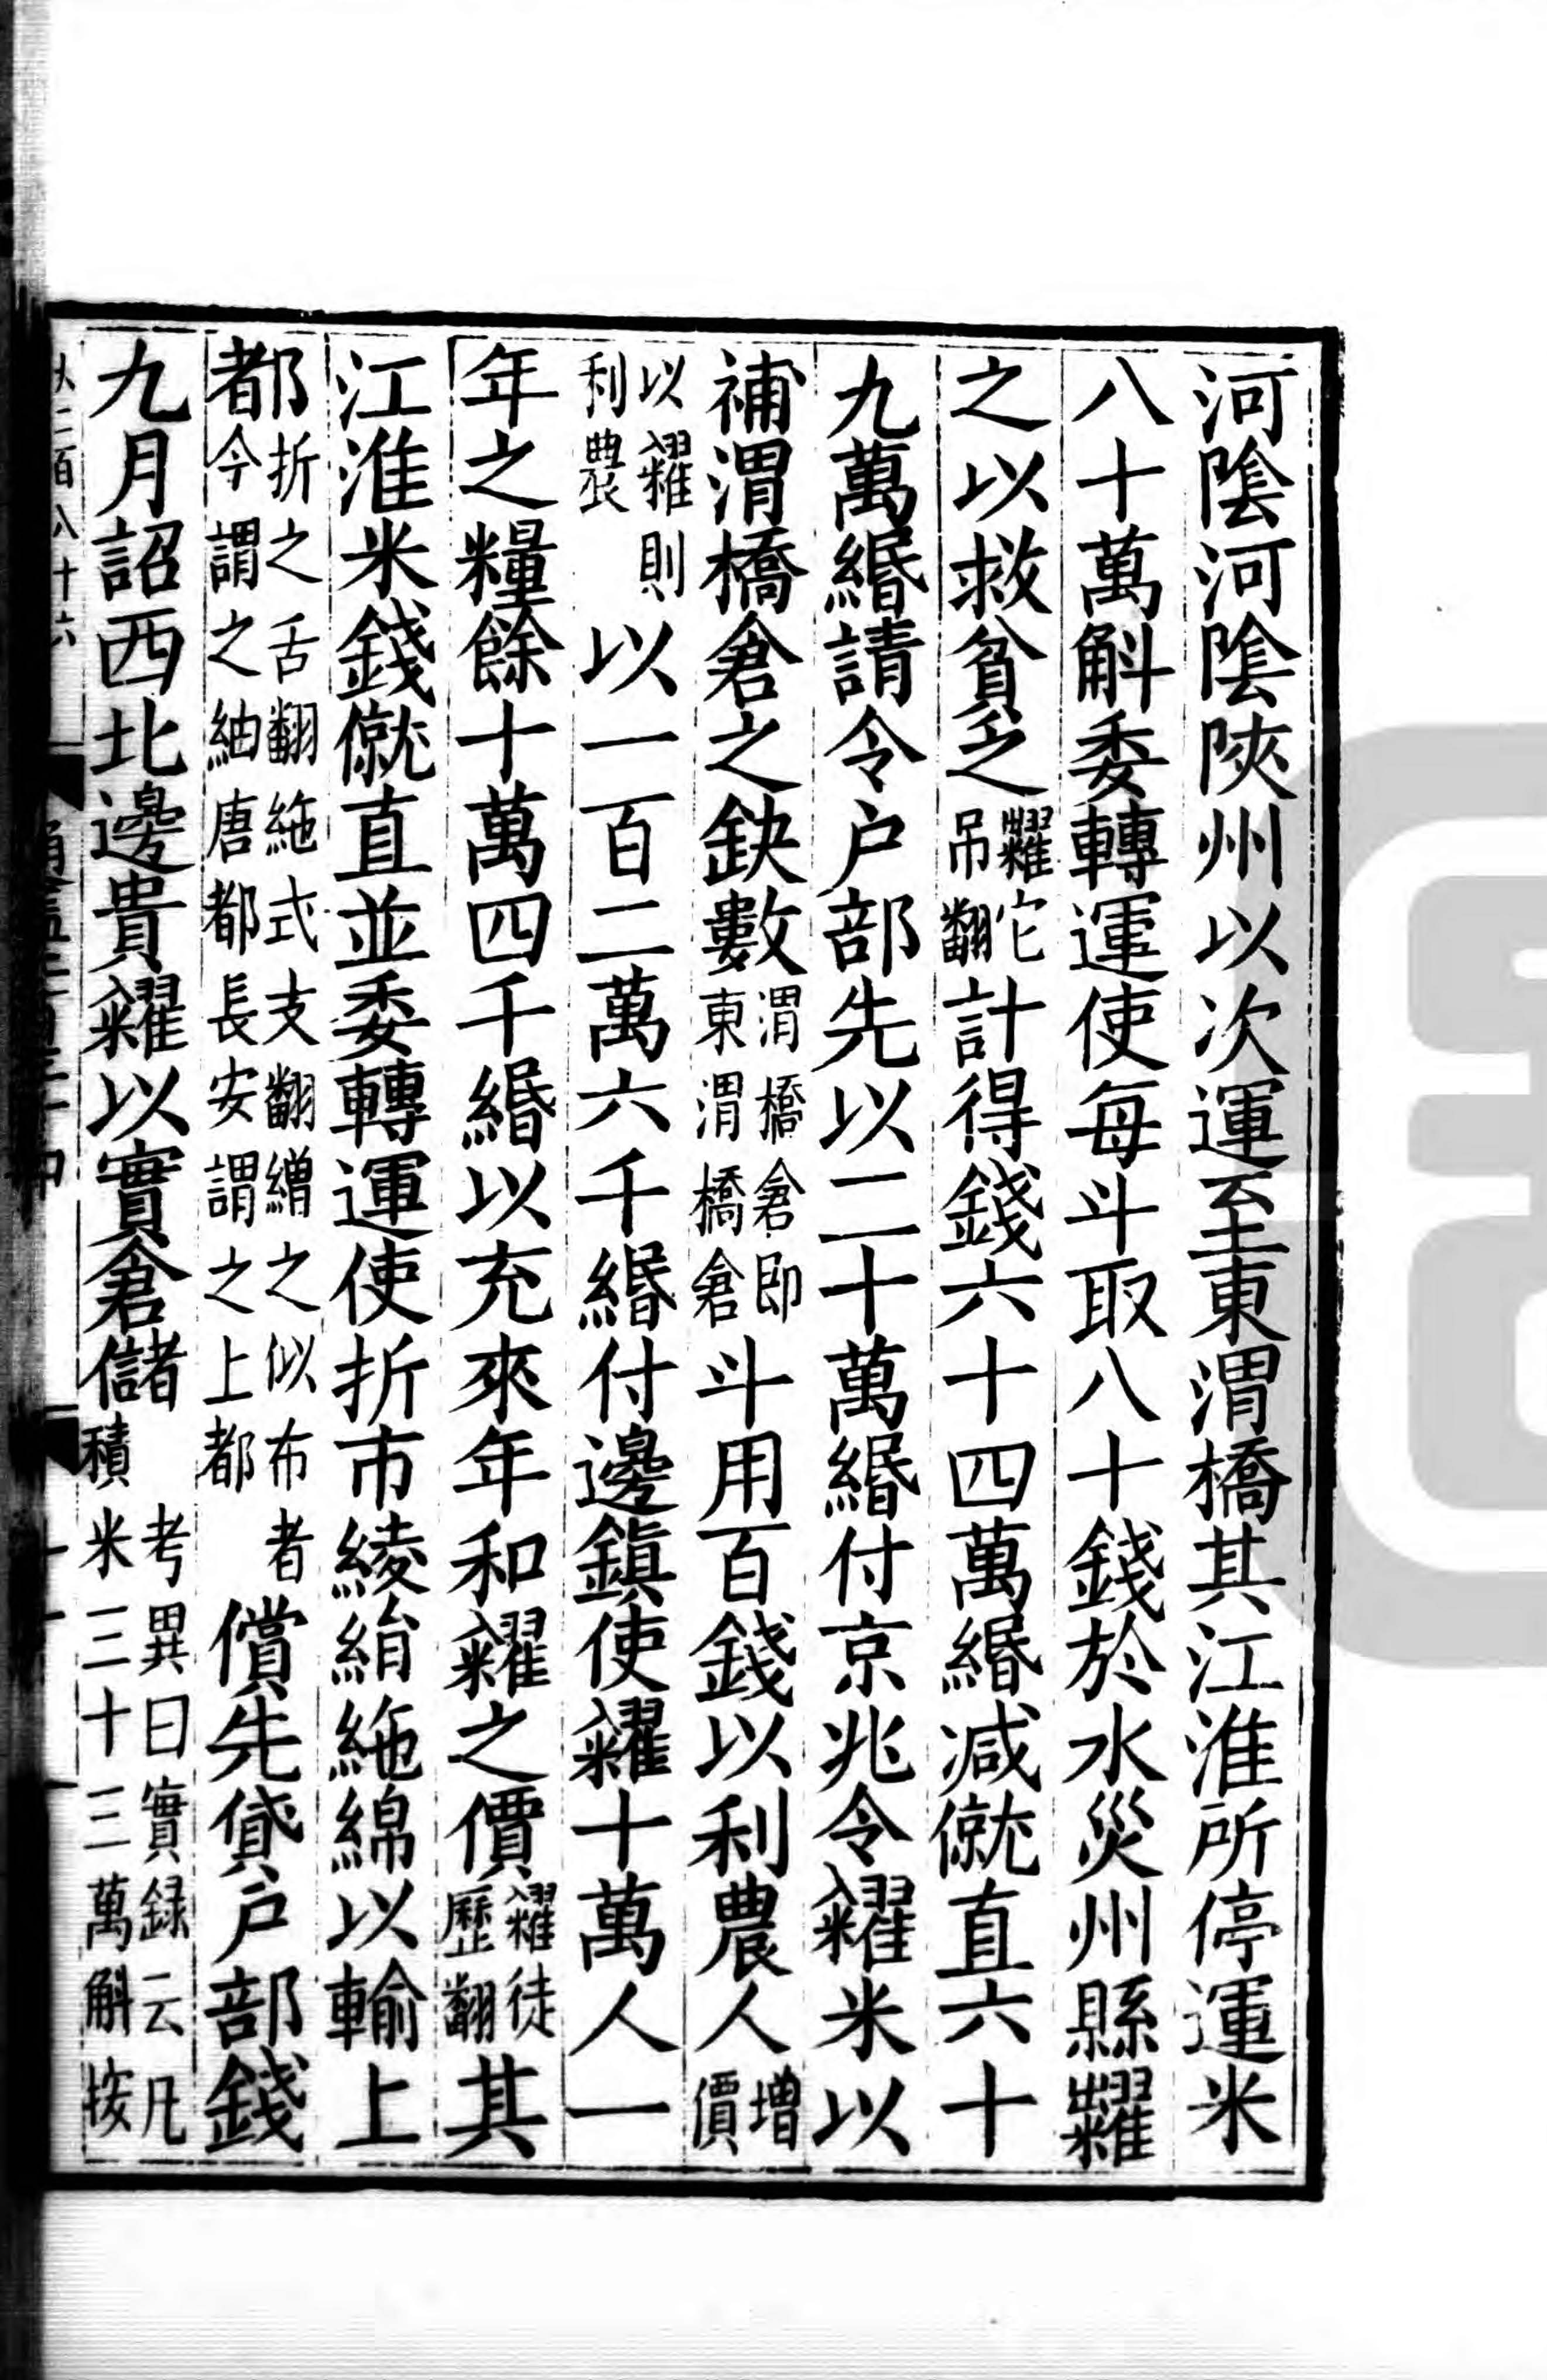 河隂河隂陝州以次運至東渭橋其江淮所停運米
八十萬斛委轉運使每斗取八十錢於水災州縣糶
之以救貧乏糶它吊翻計得錢六十四萬緡減僦直六十
九萬緡請令户部先以二十萬緡付京兆令糴米以
補渭橋倉之缺數渭橋倉即東渭橋倉斗用百錢以利農人增價
以糴則利農以一百二萬六千緡付邊鎭使糴十萬人一
年之糧餘十萬四千緡以充來年和糴之價糴徒歷翻其
江淮米錢僦直並委轉運使折市綾絹絁綿以輸上
都折之舌翻絁式支翻繒之似布者今謂之紬唐都長安謂之上都償先貸户部錢
九月詔西北邊貴糴以實倉儲考異曰實録云凡積米三十三萬斛按